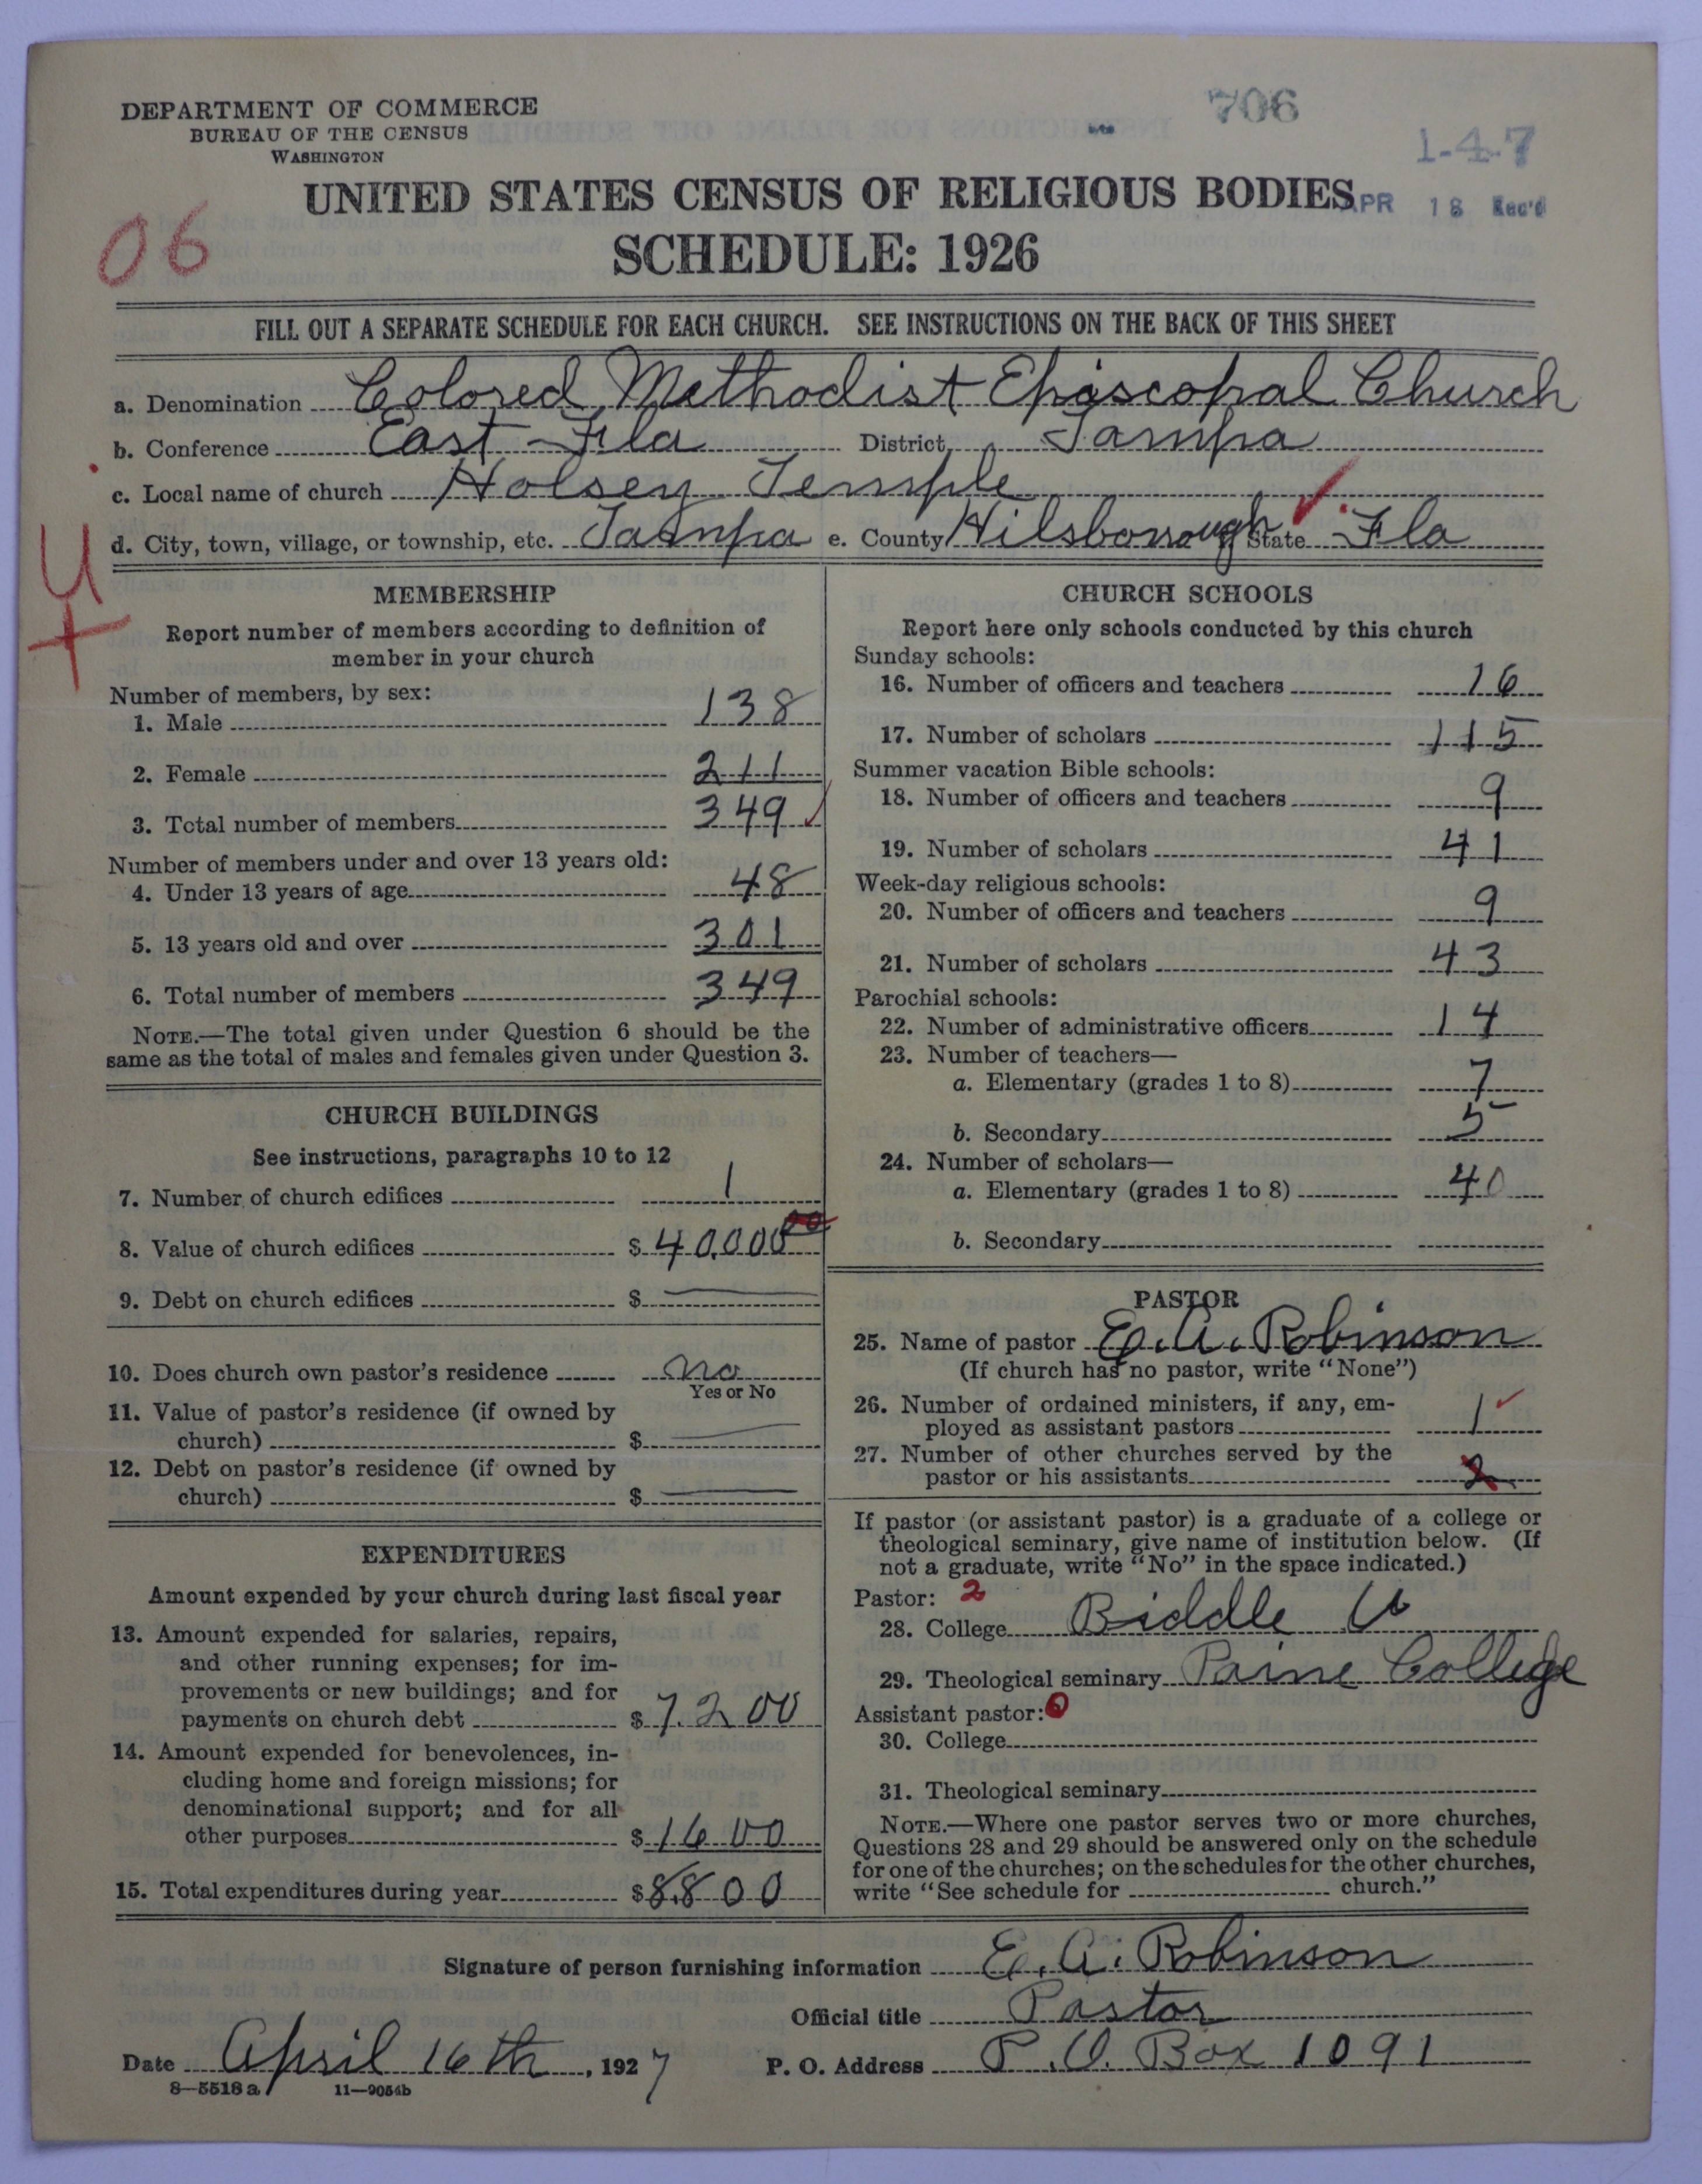 DEPARTMENT OF COMMERCE
BUREAU OF THE CENSUS
WASHINGTON
706
1-4-7
UNITED STATES CENSUS OF RELIGIOUS BODIES
APR 18 Rec'd
SCHEDULE: 1926
06
FILL OUT A SEPARATE SCHEDULE FOR EACH CHURCH. SEE INSTRUCTIONS ON THE BACK OF THIS SHEET
a. Denomination Colored Methodist Episcopal Church
b. Conference East Fla District Tampa
c. Local name of church Holsey Temple
d. City, town, village, or township, etc. Tampa e. County Hilsborough State Fla
U
+
MEMBERSHIP
Report number of members according to definition of
member in your church
Number of members, by sex:
1. Male 138
2. Female 211
3. Total number of members 349
Number of members under and over 13 years old:
4. Under 13 years of age 48
5. 13 years old and over 301
6. Total number of members 349
NOTE.—The total given under Question 6 should be the
same as the total of males and females given under Question 3.
CHURCH BUILDINGS
See instructions, paragraphs 10 to 12
7. Number of church edifices 1
8. Value of church edifices $ 40,000 00
9. Debt on church edifices $ —
10. Does church own pastor's residence no
Yes or No
11. Value of pastor's residence (if owned by
church) $ —
12. Debt on pastor's residence (if owned by
church) $ —
EXPENDITURES
Amount expended by your church during last fiscal year
13. Amount expended for salaries, repairs,
and other running expenses; for im-
provements or new buildings; and for
payments on church debt $ 7.200
14. Amount expended for benevolences, in-
cluding home and foreign missions; for
denominational support; and for all
other purposes $ 1600
15. Total expenditures during year $ 8,800
CHURCH SCHOOLS
Report here only schools conducted by this church
Sunday schools:
16. Number of officers and teachers 16
17. Number of scholars 115
Summer vacation Bible schools:
18. Number of officers and teachers 9
19. Number of scholars 41
Week-day religious schools:
20. Number of officers and teachers 9
21. Number of scholars 43
Parochial schools:
22. Number of administrative officers 14
23. Number of teachers—
a. Elementary (grades 1 to 8) 7
b. Secondary 5
24. Number of scholars—
a. Elementary (grades 1 to 8) 40
b. Secondary
PASTOR
25. Name of pastor E. A. Robinson
(If church has no pastor, write "None")
26. Number of ordained ministers, if any, em-
ployed as assistant pastors 1
27. Number of other churches served by the
pastor or his assistants 2
If pastor (or assistant pastor) is a graduate of a college or
theological seminary, give name of institution below. (If
not a graduate, write "No" in the space indicated.)
Pastor: 2
28. College Biddle U
29. Theological seminary Paine College
Assistant pastor: 0
30. College
31. Theological seminary
NOTE.—Where one pastor serves two or more churches,
Questions 28 and 29 should be answered only on the schedule
for one of the churches; on the schedules for the other churches,
write "See schedule for church."
Signature of person furnishing information E. A. Robinson
Official title Pastor
Date April 16th, 1927 P. O. Address P. O. Box 1091
8—5518a 11—9054b